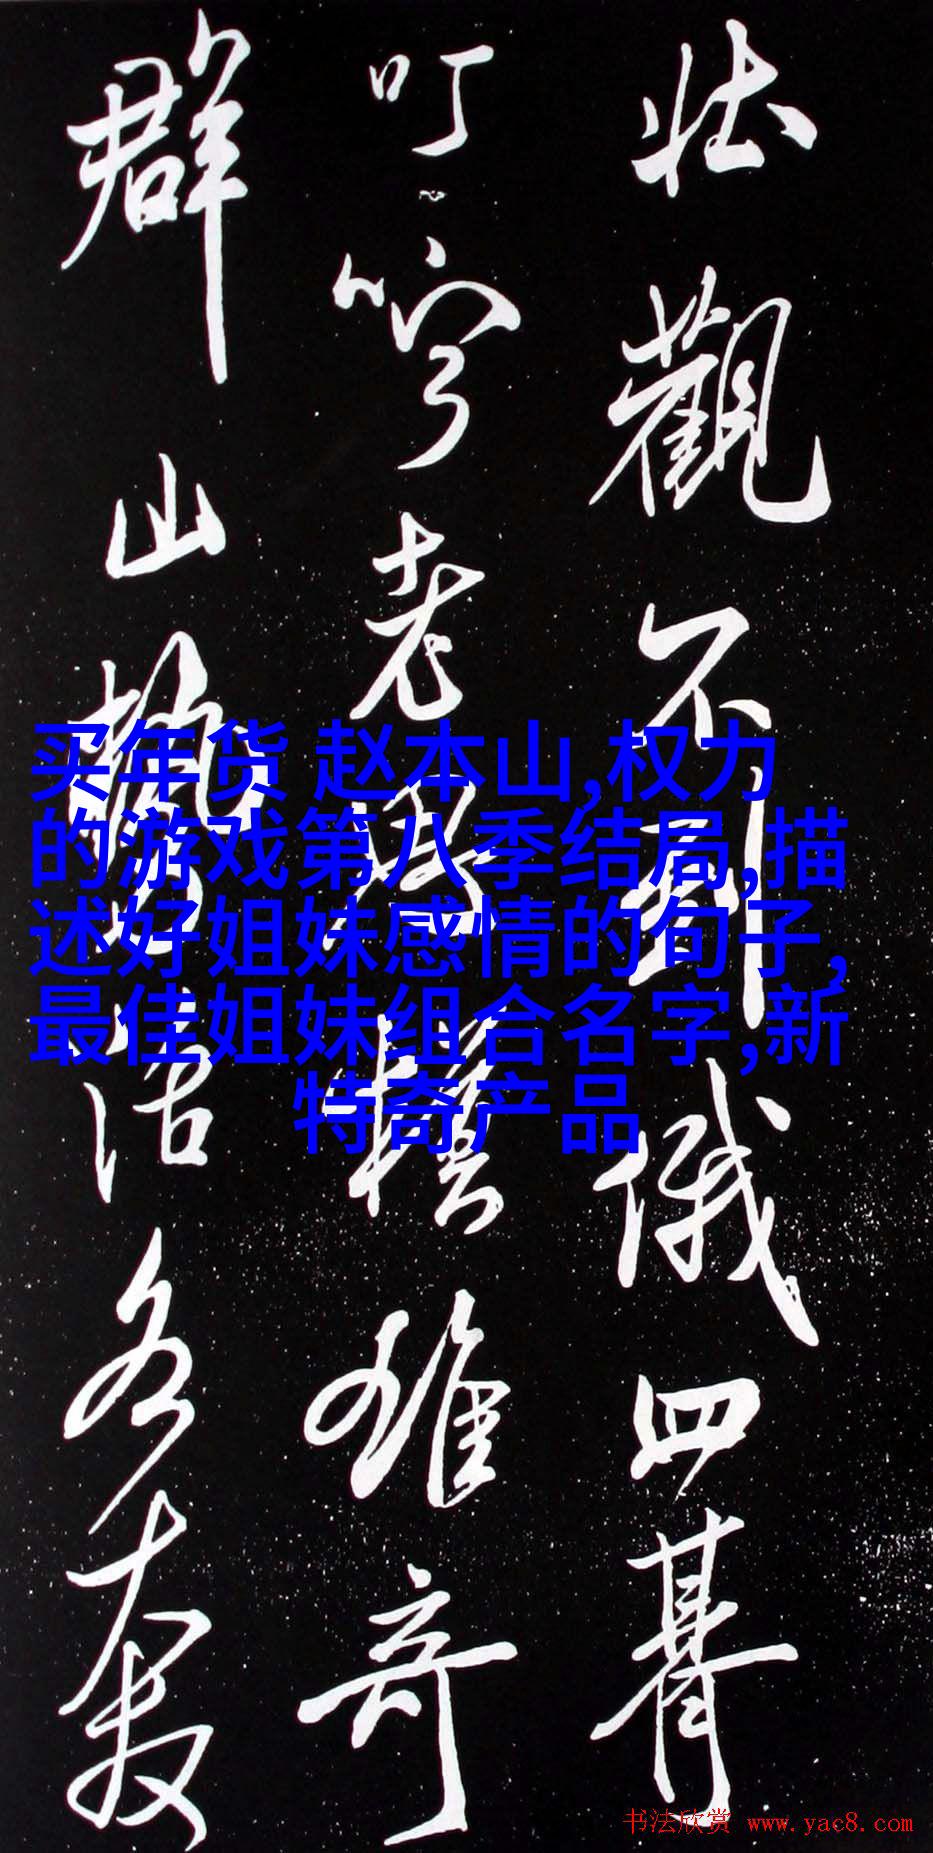 壮觀不到俄四
叮咛老雄奇
群山活各
买年货 赵本山,权力
的游戏第八季结局,描
述好姐妹感情的句子,
最佳姐妹组合名字,新
特奇产品
书法欣赏 www.yac8.com